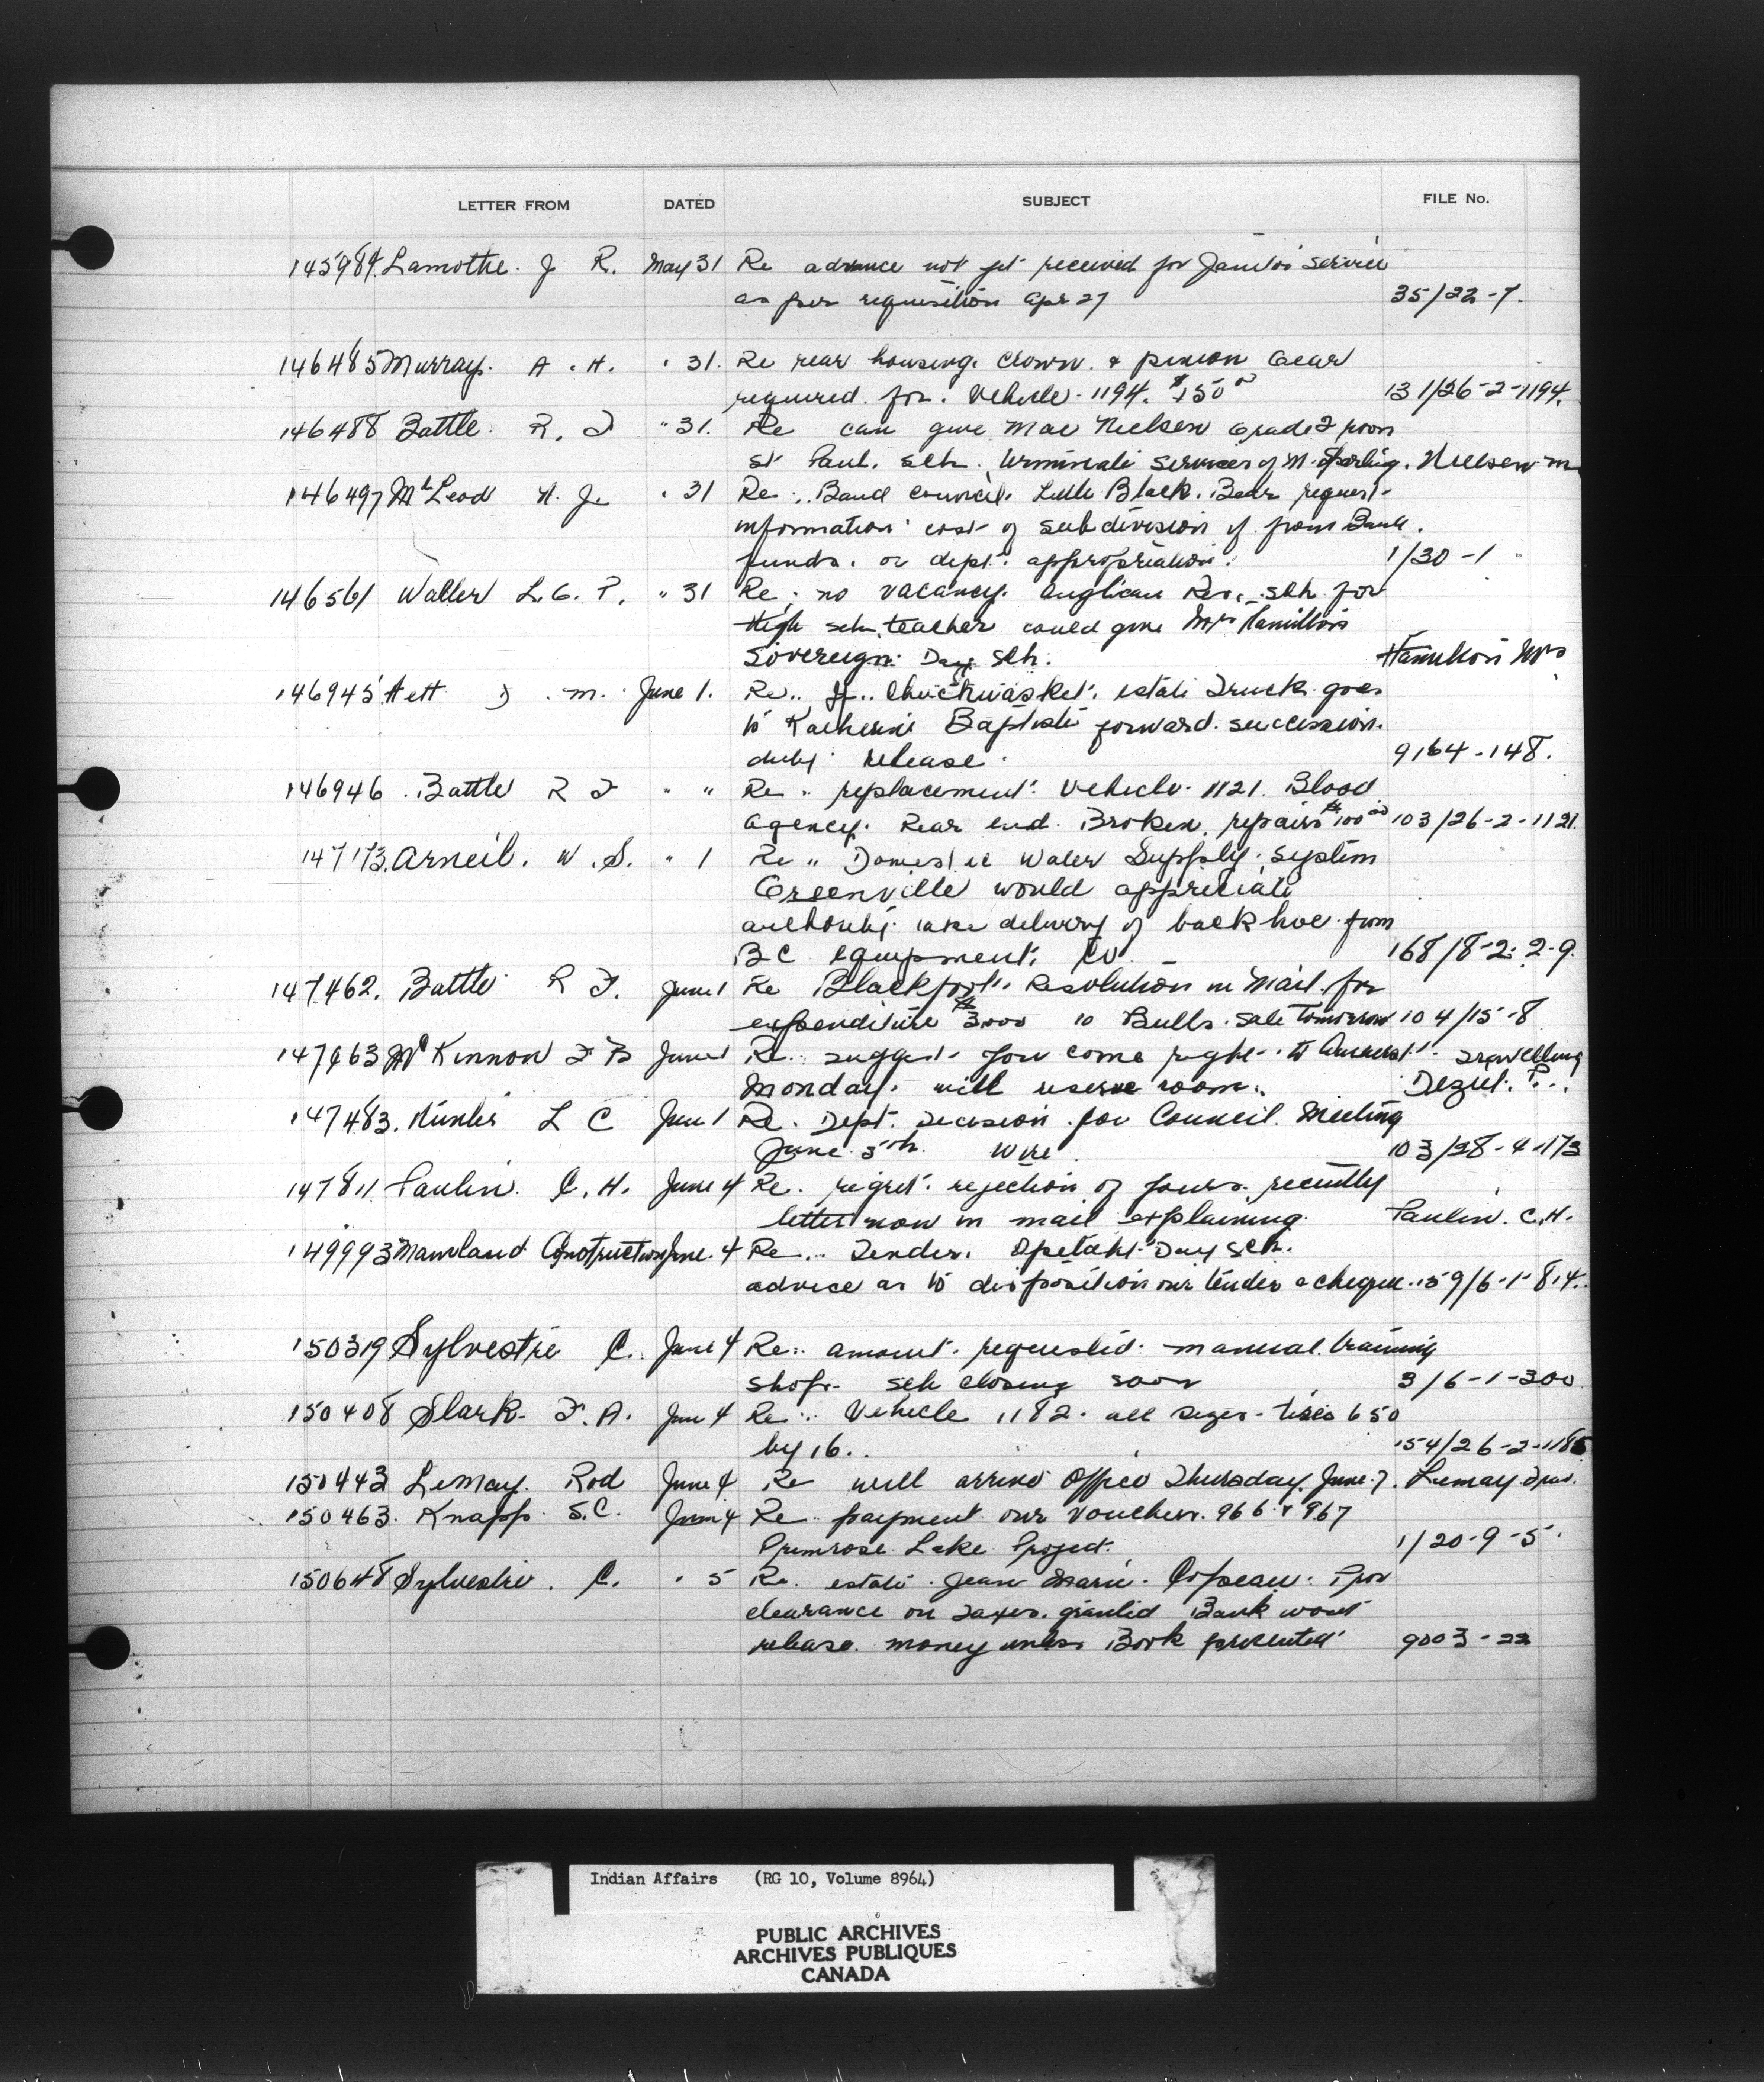 LETTER FROM DATED SUBJECT FILE No.
145984 Lamothe. J R. May 31 Re advance not yet received for Janitor service
as per requisition Apr 27 35/22-7.
146485 Murray. A. H. " 31. Re rear housing. Crown & pinion Gear
required for. Vehicle 1194. $150 131/26-2-1194.
146488 Battle. R. F " 31. Re can give Mae Nielsen Grade 2 room
St Paul. Sch. terminate services of M. Sperling. Nielsen M
146497 McLeod N. J. " 31 Re. Band Council. Little Black. Bear request
information cost of subdivision if from Band.
funds. or dept. appropriation. 1/30-1
146561 Waller L. G. P. " 31 Re. no vacancy. Anglican Res. Sch. for
High sch. teacher could give Mrs Hamilton
Sovereign Day Sch. Hamilton Mrs
146945 Hett J. M. June 1. Re. estate Truck goes
to Katherine Baptiste forward. succession.
duty release. 9164-148.
146946. Battle R F " " Re. replacement. Vehicle 1121. Blood
Agency. Rear end. Broken. repairs $100 103/26-2-1121.
147173. Arneil. W. S. " 1 Re " Domestic Water Supply. System
Greenville would appreciate
authority. take delivery of back hoe from
BC Equipment. Co. 168/8-2-2-9.
147462. Battle R F. June 1 Re Blackfoot. Resolution in Mail. for
expenditure $3000 10 Bulls. Sale tomorrow 104/15-8
147463 McKinnon F B June 1 Re. suggest you come right to Amherst. Travelling
Monday. will reserve room. Deziel.
147483. L C June 1 Re. Dept. Decision for Council. Meeting
June 5th. Wire. 103/28-4-173
147811 Paulin. C. H. June 4 Re. regret. rejection of yours. recently
letter now in mail explaining. Paulin. C. H.
149993 Mainland Construction June. 4 Re. Tender. Opetaht Day Sch.
advice as to disposition our tender & cheque. 159/6-1-814.
150319 Sylvestre C. June 4 Re. amount. requested. manual. training
shop. sch closing soon 3/6-1-300
150408 Slark. F. A. June 4 Re. Vehicle 1182. all sizes tires 650
by 16. 154/26-2-118
150443 LeMay. Rod June 4 Re will arrive Office Thursday. June 7. Lemay Trav.
150463. Knapp. S. C. June 4 Re. payment our Vouchers. 966 & 967
Primrose Lake Project. 1/20-9-5.
150648 Sylvestre. C. " 5 Re. estate. Jean Marie. Prov
clearance on Taxes. granted Bank wont
release. money unless Book presented 9003-22
Indian Affairs (RG 10, Volume 8964)
PUBLIC ARCHIVES
ARCHIVES PUBLIQUES
CANADA